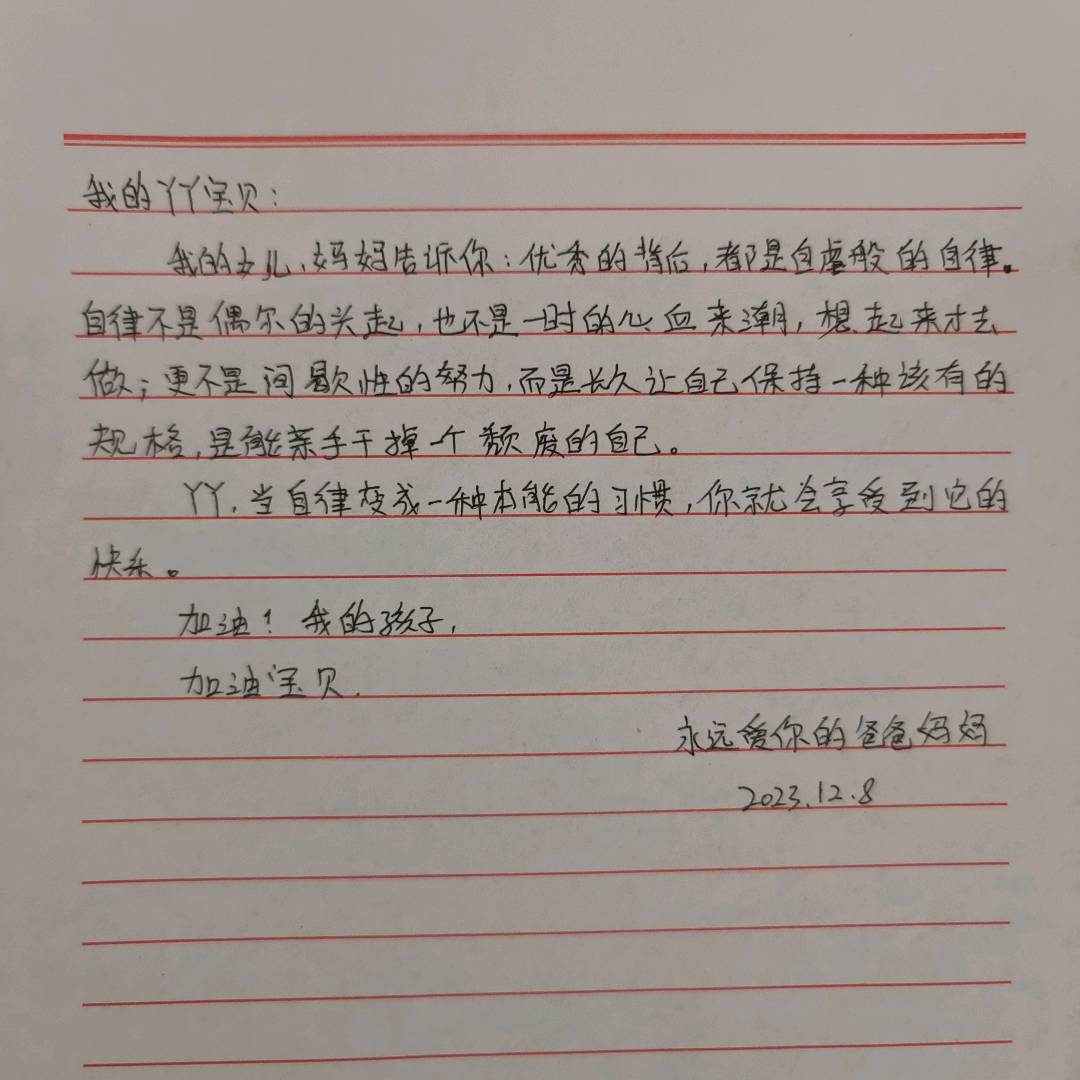 我的丫丫宝贝:
我的女儿,妈妈告诉你:优秀的背后,都是自虐般的自律。
自律不是偶尔的头起,也不是一时的心血来潮,想起来才去
做;更不是间歇性的努力,而是长久让自己保持一种该有的
规格,是能亲手干掉一个颓废的自己。
丫丫,当自律变成一种本能的习惯,你就会享受到它的
快乐。
加油!我的孩子,
加油宝贝.
永远爱你的爸爸妈妈
2023.12.8